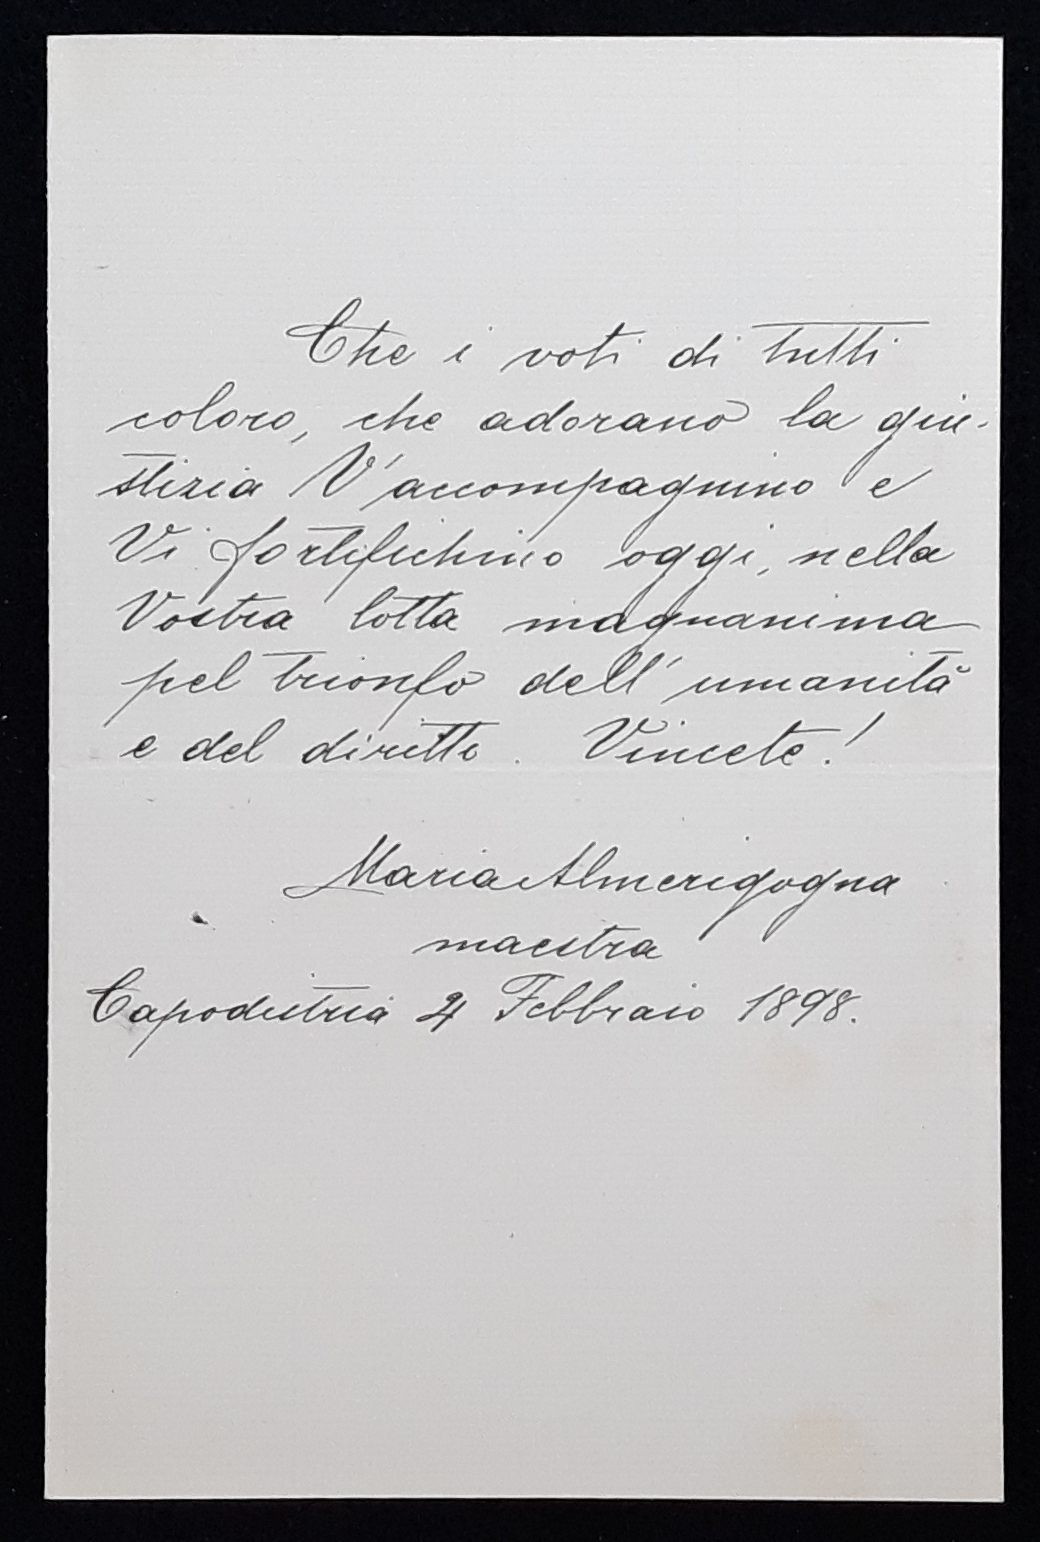 Che i voti di tutti
coloro, che adorano la giu-
stizia V'accompagnino e
Vi fortifichino oggi, nella
Vostra lotta magnanima
pel trionfo dell'umanità
e del diritto. Vincete!
Maria Almerigogna
maestra
Capodistria 4 Febbraio 1898.